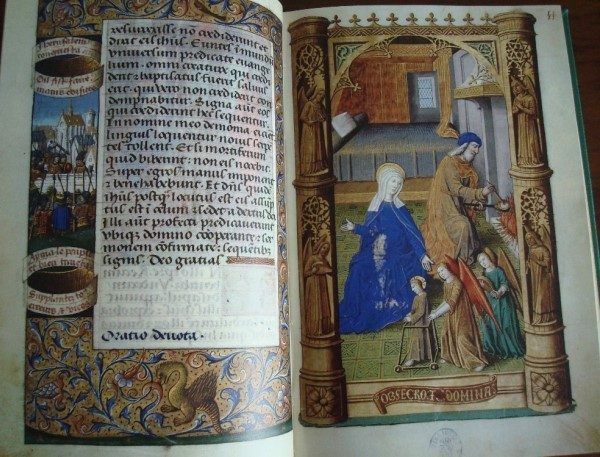 resurrexisse no crediderunt et
dixit eis ihus. Euntes i mundu
uniuersum predicate euange
lium. omni creature qui credi
derit et baptisatus fuerit saluus
erit. qui vero non crediderit con
dempnabitur. Signa aut eos
qui crediderint hec sequentur.
In nomine meo demonia eicient
linguis loquentur nouis serpe
tes tollent. Et si mortiferum
quid biberint: non eis nocebit.
Super egros manus imponent
et bene habebunt. Et dns quide
ihus postqua locutus est eis assup
tus est i celum et sedet a dextris dei
Illi aut profecti predicauerunt
ubiqz domino cooperante et ser
monem cofirmate sequetibz
signis. Deo gratias
Oratio deuota.
OBSECRO TE DOMINA